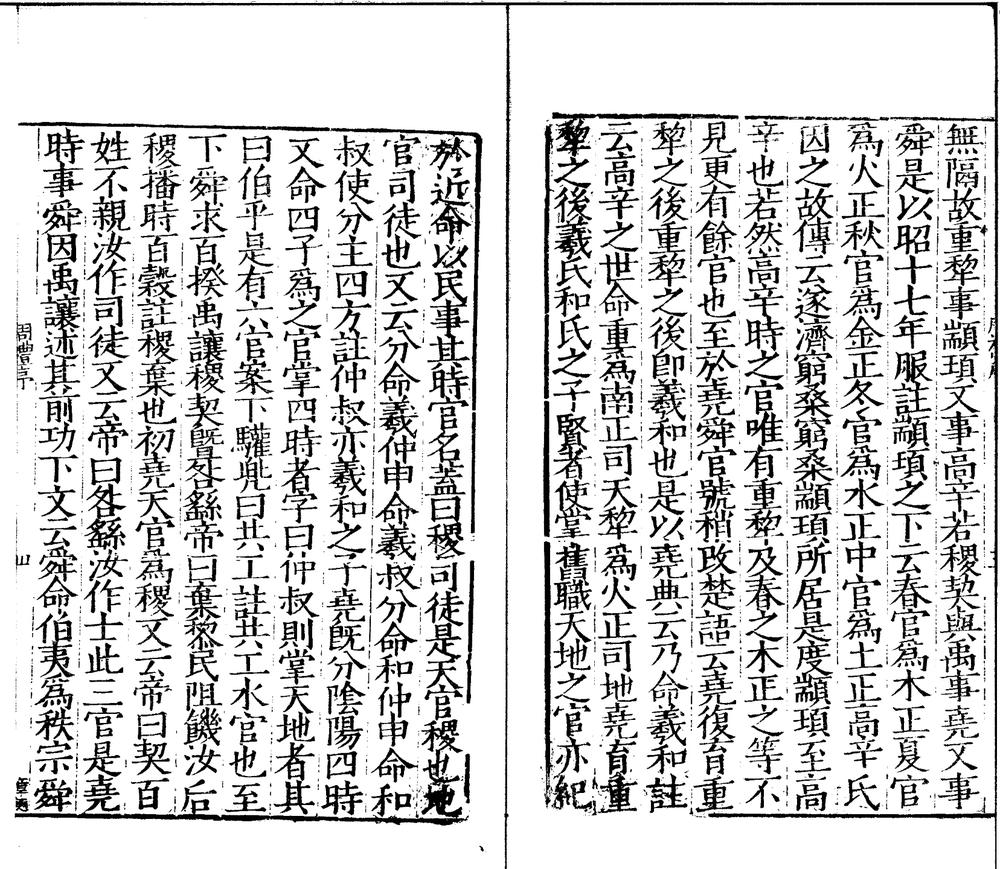 無隔故重犂事顓頊又事高辛若稷契與禹事堯又事
舜是以昭十七年服註顓頊之下云春官為木正夏官
為火正秋官為金正冬官為水正中官為土正高辛氏
因之故傳云遂濟窮桑窮桑顓頊所居是度顓頊至高
辛也若然高辛時之官唯有重犂及春之木正之等不
見更有餘官也至於堯舜官號稍改楚語云堯復育重
犂之後重犂之後卽羲和也是以堯典云乃命羲和註
云高辛之世命重為南正司天犂為火正司地堯育重
犂之後羲氏和氏之子賢者使掌舊職天地之官亦紀
於近命以民事其時官名蓋曰稷司徒是天官稷也地
官司徒也又云分命羲仲申命羲叔分命和仲申命和
叔使分主四方註仲叔亦羲和之子堯旣分陰陽四時
又命四子爲之官掌四時者字曰仲叔則掌天地者其
曰伯乎是有六官案下驩兠曰共工註共工水官也至
下舜求百揆禹讓稷契曁咎繇帝曰棄黎民阻饑汝后
稷播時百穀註稷棄也初堯天官爲稷又云帝曰契百
姓不親汝作司徒又云帝曰咎繇汝作士此三官是堯
時事舜因禹讓述其前功下文云舜命伯夷爲秩宗舜
周禮序
四